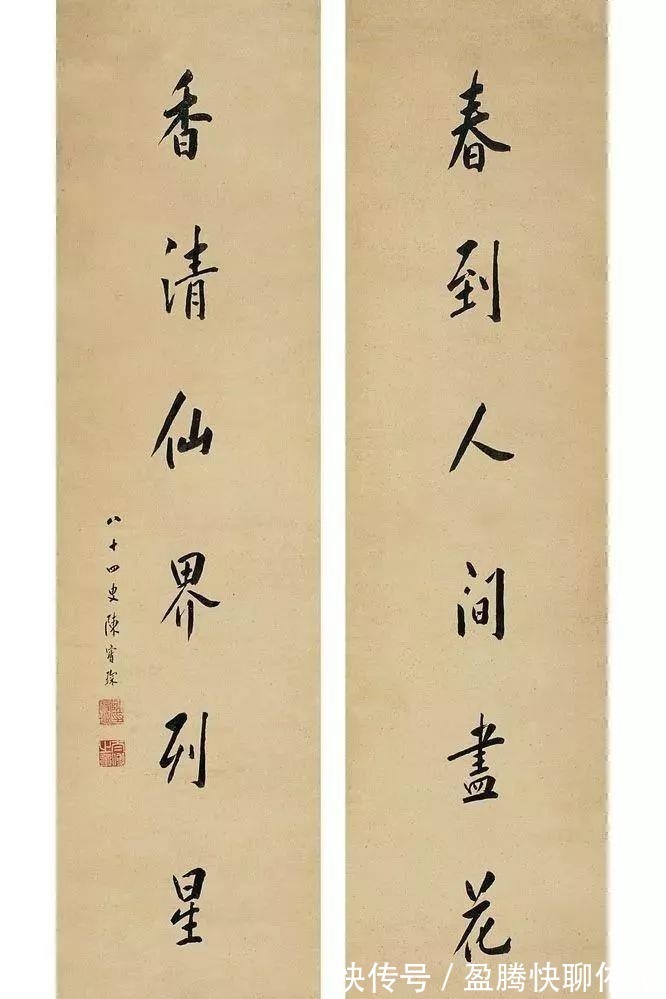 春到人间盡花
香清仙界列星
八十四叟陳寶琛
快传号/盈腾快聊体